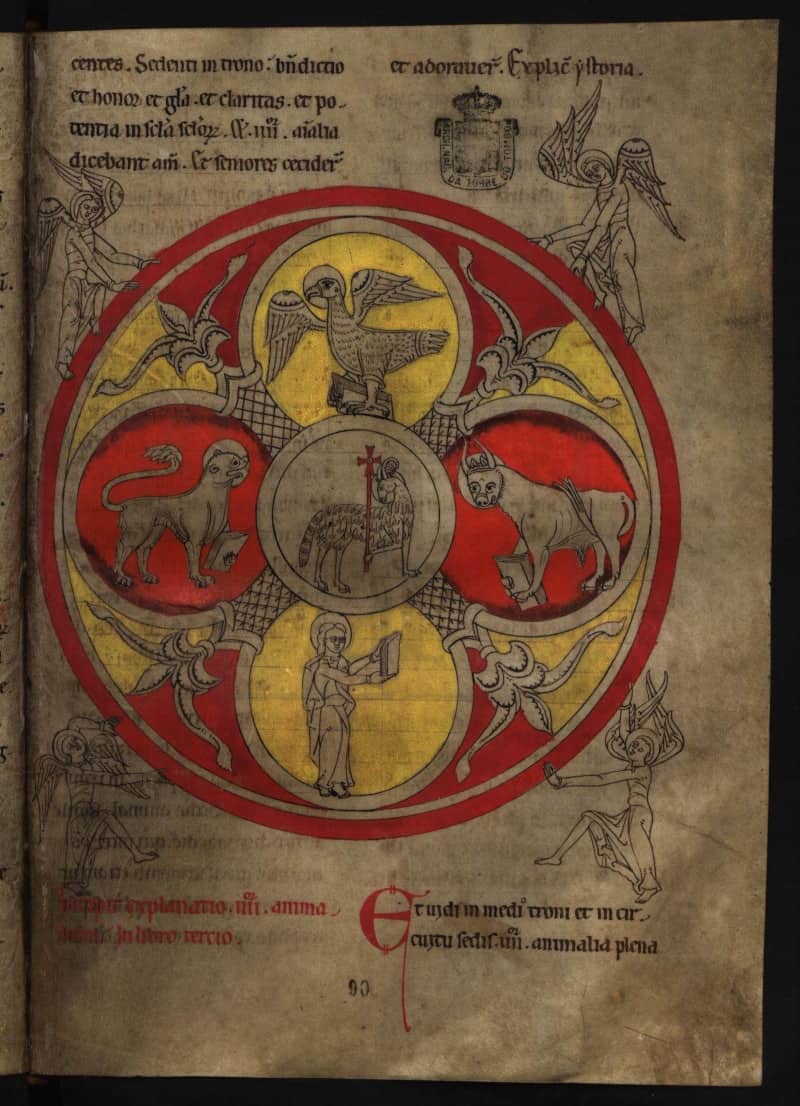 centes. Sedenti in trono: bn̄dictio
et honor et gl̄a. et claritas. et po-
tentia in scl̄a scl̄oꝝ. Et. iiiiᵒʳ. aīalia
dicebant am̄. Et seniores cecider̄
et adorauer̄. Explic̄ ẏstoria.
DA TORRE DO TOMBO
explanatio. iiiiᵒʳ. anima-
In libro tercio.
Et uidi in medio troni et in cir-
cuitu sedis. iiiiᵒʳ. animalia plena
90